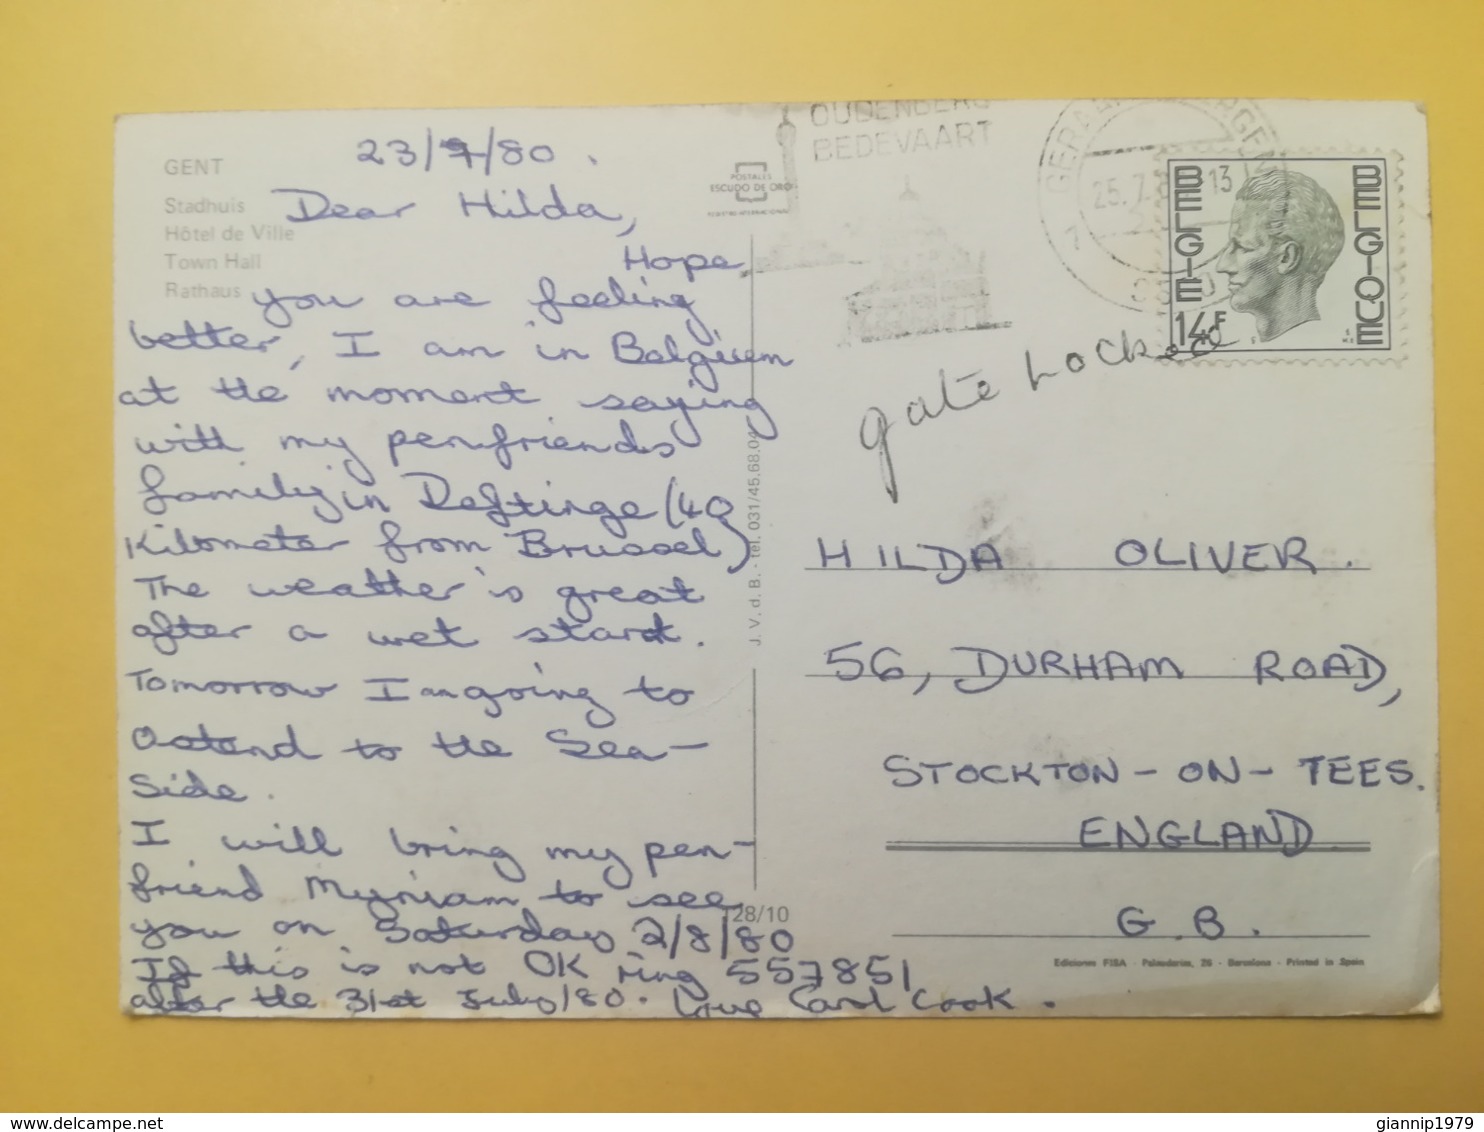 GENT
Stadhuis
Hôtel de Ville
Town Hall
Rathaus
23/7/80.
Dear Hilda,
Hope
you are feeling
better, I am in Belgium
at the moment saying
with my penfriends
family in Deftinge (40
Kilometer from Brussel)
The weather is great
after a wet start.
Tomorrow I am going to
Ostend to the Sea-
side.
I will bring my pen-
friend Myriam to see
you on Saturday 2/8/80
If this is not OK ring 557851
after the 31st July/80. Love Carol Cook.
POSTALES
ESCUDO DE ORO
J. V. d. B. - tel. 031/45.68.04
128/10
OUDENBERG
BEDEVAART
25.7.8 13
BELGIE
BELGIQUE
14F
gate Locked
HILDA OLIVER.
56, DURHAM ROAD,
STOCKTON-ON-TEES.
ENGLAND
G.B.
Ediciones FISA - Palaudarias, 26 - Barcelona - Printed in Spain
delcampe.net
giannip1979